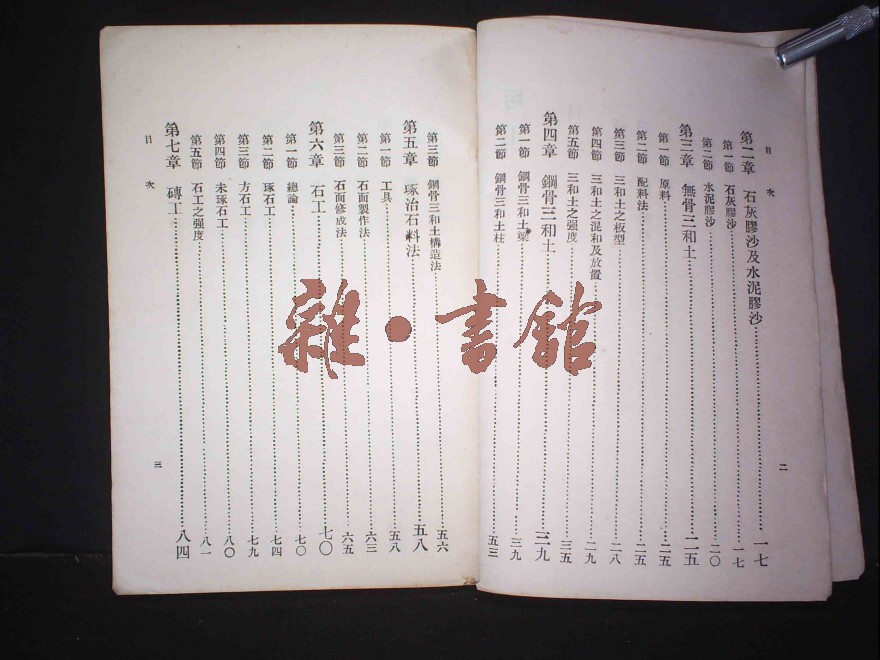 目　次
第二章　石灰膠沙及水泥膠沙……一七
第一節　石灰膠沙……一七
第二節　水泥膠沙……二〇
第三章　無骨三和土……二五
第一節　原料……二五
第二節　配料法……二五
第三節　三和土之板型……二八
第四節　三和土之混和及放置……二九
第五節　三和土之强度……三五
第四章　鋼骨三和土……三九
第一節　鋼骨三和土梁……三九
第二節　鋼骨三和土柱……五三
二
第三節　鋼骨三和土構造法……五六
第五章　琢治石料法……五八
第一節　工具……五八
第二節　石面製作法……六三
第三節　石面修成法……六五
第六章　石工……七〇
第一節　總論……七〇
第二節　琢石工……七四
第三節　方石工……七九
第四節　未琢石工……八〇
第五節　石工之强度……八一
第七章　磚工……八四
目　次
三
雜·書館